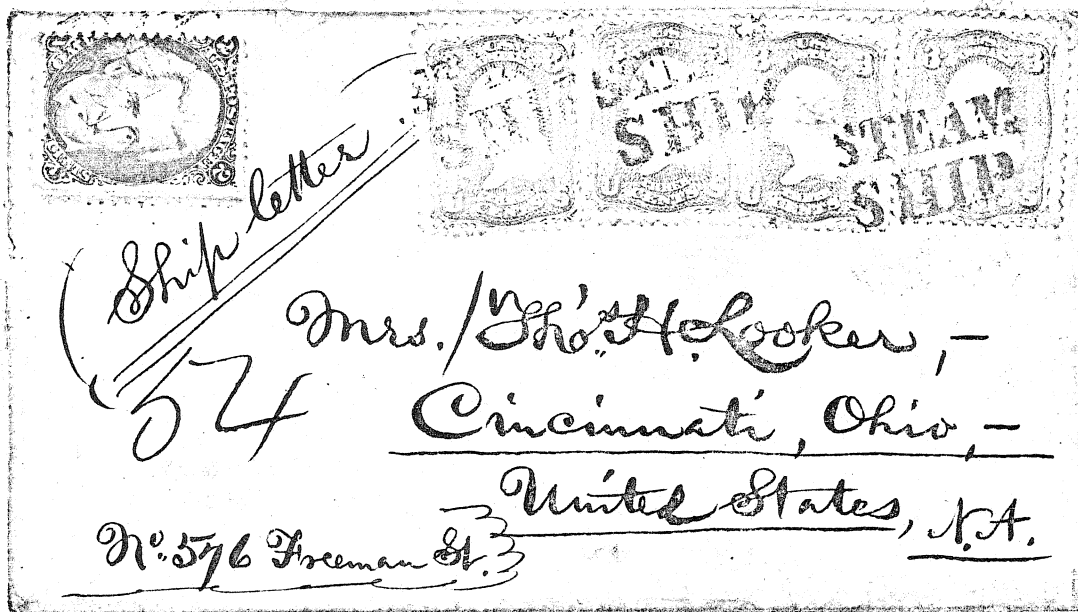 STEAM
SHIP
STEAM
SHIP
3 3
(Ship letter.
54
Mrs. / Tho.s H. Looker, –
Cincinnati, Ohio, –
United States, N.A.
No. 576 Freeman St.